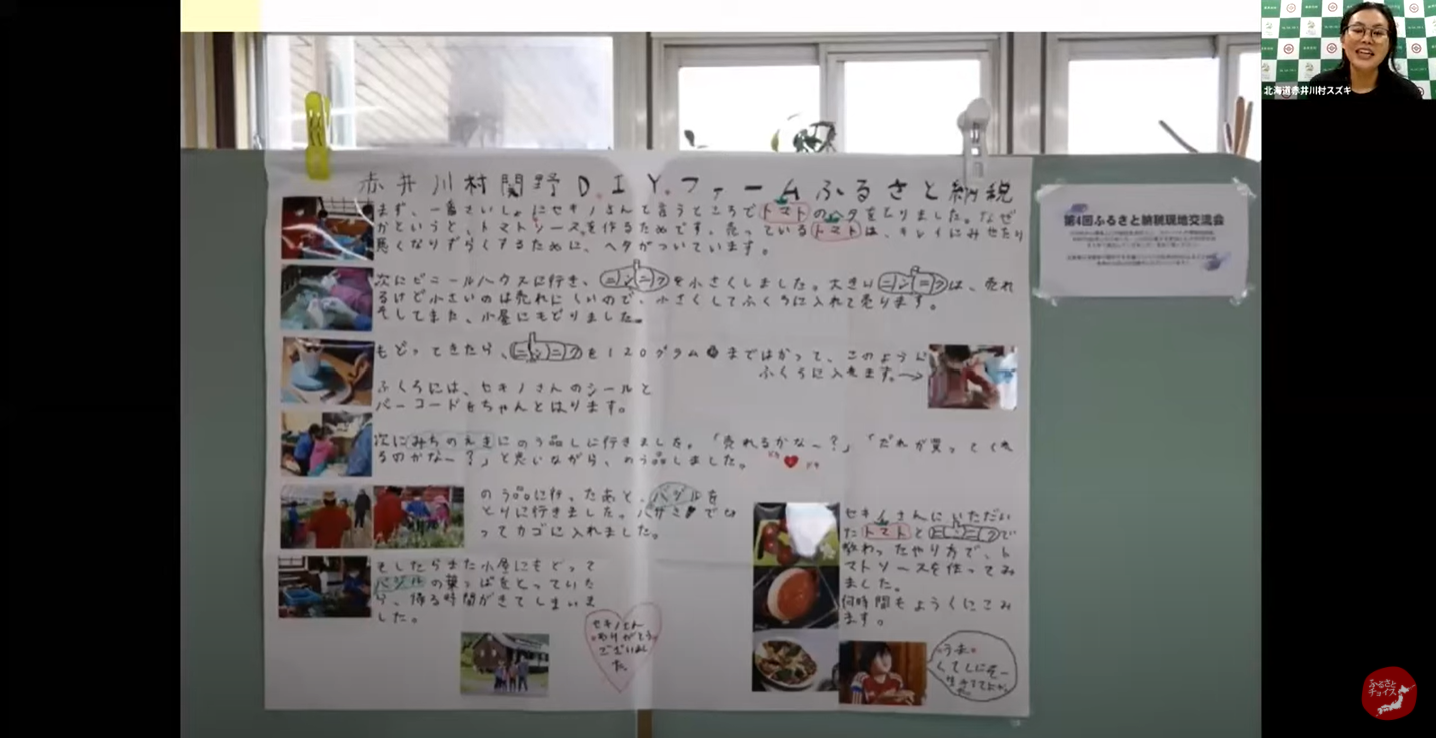 北海道赤井川村スズキ
赤井川村関野D.I.Y.ファームふるさと納税
まず、一番さいしょにセキノさんて言うところでトマトのヘタをとりました。なぜ
かというと、トマトソースを作るためです。売っているトマトは、キレイにみせたり
悪くなりずらくするために、ヘタがついています。
次にビニールハウスに行き、ニンニクを小さくしました。大きいニンニクは、売れ
るけど小さいのは売れにくいので、小さくしてふくろに入れて売ります。
そしてまた、小屋にもどりました。
もどってきたら、ニンニクを120グラムまではかって、このように
ふくろに入れます。→
ふくろには、セキノさんのシールと
バーコードをちゃんとはります。
次にみちのえきにのう品しに行きました。「売れるかな〜?」「だれが買ってくれ
るのかな〜?」と思いながら、のう品しました。
ドキ ドキ
のう品に行ったあと、バジルを
とりに行きました。ハサミでき
ってカゴに入れました。
そしたらまた小屋にもどって
バジルの葉っぱをとっていた
ら、帰る時間がきてしまいま
した。
セキノさん
ありがとう
ございまし
た。
セキノさんにいただい
たトマトとニンニクで
教わったやり方で、ト
マトソースを作ってみ
ました。
何時間もようくにこみ
ます。
第4回ふるさと納税現地交流会
ふるさと
チョイス